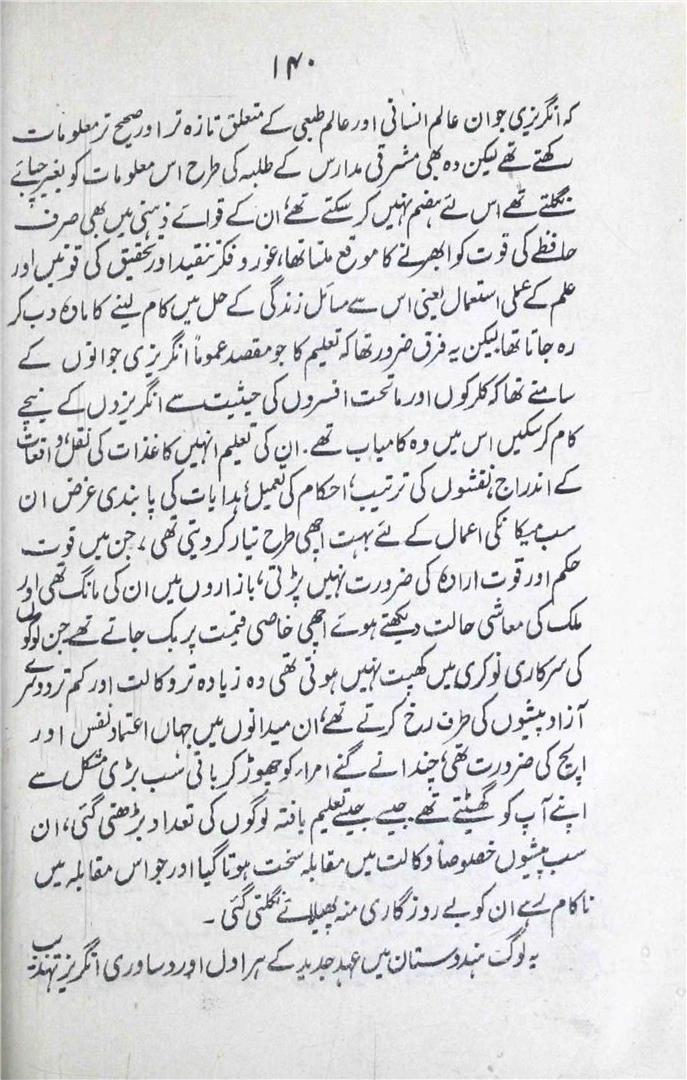 ۱۴۰
کہ انگریزی جوان عالم انسانی اور عالم طبعی کے متعلق تازہ تر اور صحیح تر معلومات
رکھتے تھے لیکن وہ بھی مشرقی مدارس کے طلبہ کی طرح اس معلومات کو بغیر چبائے
نگلتے تھے اس لئے ہضم نہیں کر سکتے تھے، ان کے قوائے ذہنی میں بھی صرف
حافظے کی قوت کو ابھرنے کا موقع ملتا تھا، غور و فکر تنقید اور تحقیق کی قوتیں اور
علم کے عملی استعمال یعنی اس سے مسائل زندگی کے حل میں کام لینے کا مادہ دب کر
رہ جاتا تھا لیکن یہ فرق ضرور تھا کہ تعلیم کا جو مقصد عموماً انگریزی جوانوں کے
سامنے تھا کہ کلرکوں اور ماتحت افسروں کی حیثیت سے انگریزوں کے نیچے
کام کر سکیں اس میں وہ کامیاب تھے۔ ان کی تعلیم انہیں کاغذات کی نقل، واقعات
کے اندراج، نقشوں کی ترتیب، احکام کی تعمیل، ہدایات کی پابندی غرض ان
سب میکانکی اعمال کے لئے بہت اچھی طرح تیار کر دیتی تھی، جن میں قوت
حکم اور قوت ارادہ کی ضرورت نہیں پڑتی، بازاروں میں ان کی مانگ تھی اور
ملک کی معاشی حالت دیکھتے ہوئے اچھی خاصی قیمت پر بک جاتے تھے جن لوگوں
کی سرکاری نوکری میں کھپت نہیں ہوتی تھی وہ زیادہ تر وکالت اور کم تر دوسرے
آزاد پیشوں کی طرف رخ کرتے تھے، ان میدانوں میں جہاں اعتماد نفس اور
اپج کی ضرورت تھی، چند انے گنے امراء کو چھوڑ کر باقی سب بڑی مشکل سے
اپنے آپ کو گھسیٹتے تھے۔ جیسے جیسے تعلیم یافتہ لوگوں کی تعداد بڑھتی گئی، ان
سب پیشوں خصوصاً وکالت میں مقابلہ سخت ہوتا گیا اور جو اس مقابلہ میں
ناکام رہے ان کو بے روزگاری منہ پھیلائے نگلتی گئی۔
یہ لوگ ہندوستان میں عہد جدید کے ہراول اور دساوری انگریز تہذیب